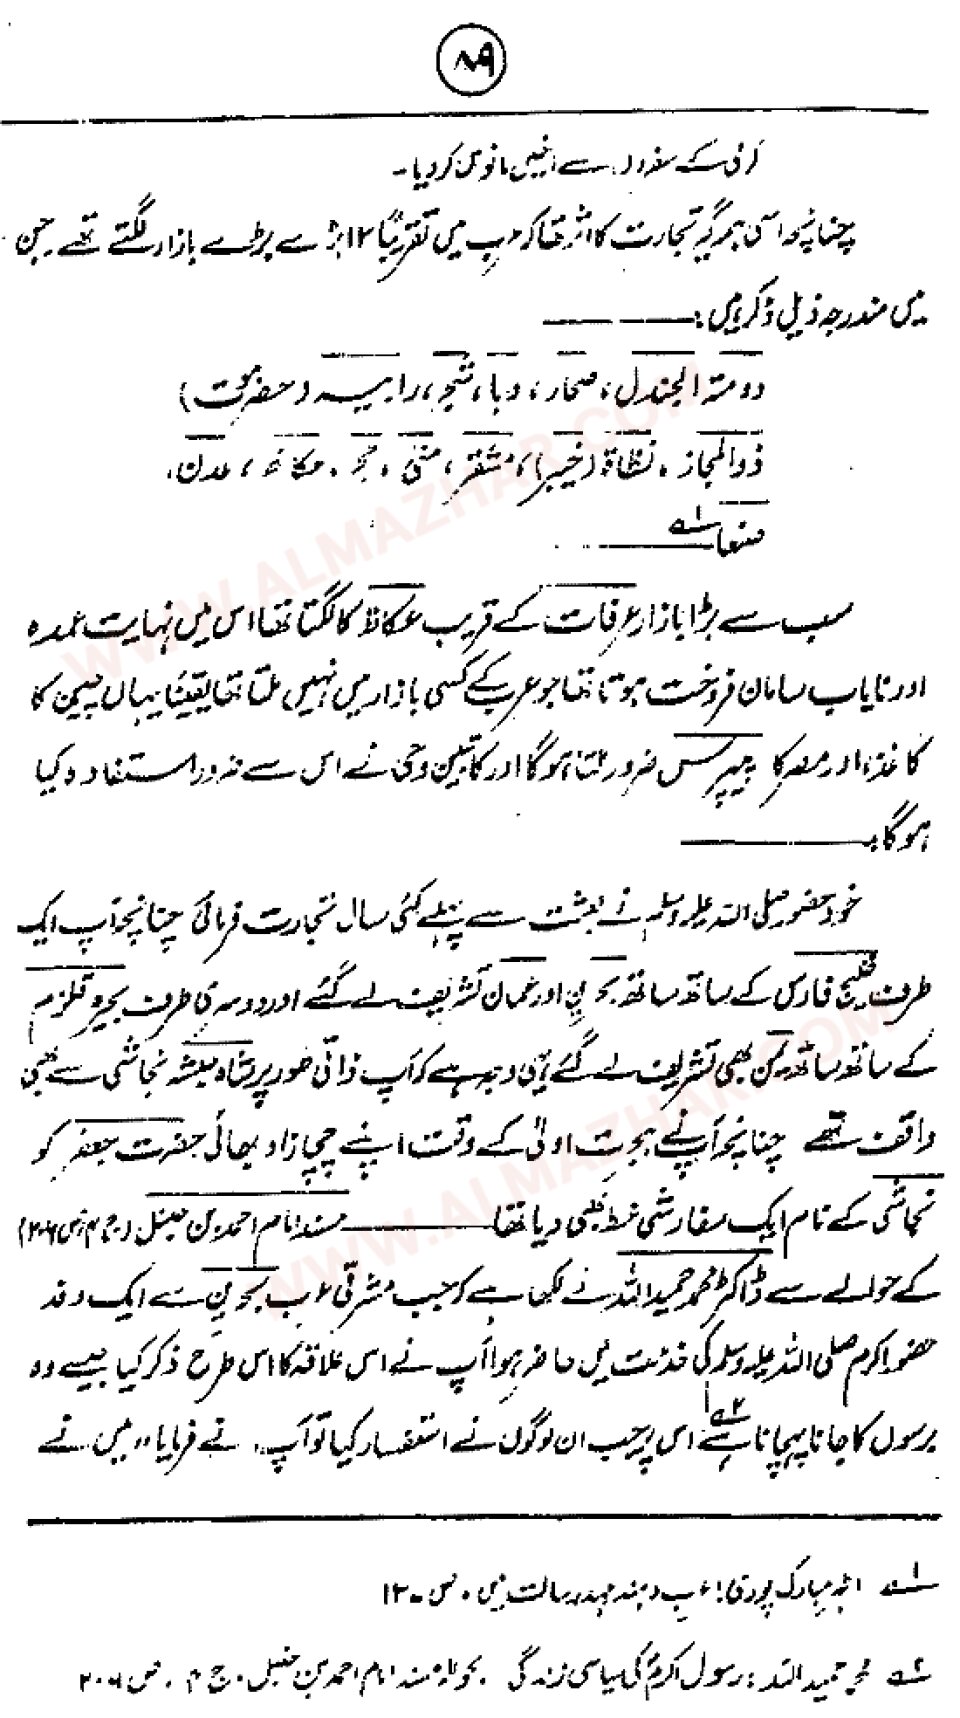 ۸۹
کے سفروں سے انہیں مانوس کر دیا۔
چنانچہ اسی ہمہ گیر تجارت کا اثر تھا کہ عرب میں تقریباً ۱۲ بڑے بڑے بازار لگتے تھے جن
میں مندرجہ ذیل ذکر ہیں:
دومتہ الجندل، صحار، دبا، شحر، رابیہ (حضرموت)
ذوالمجاز، نطاۃ (خیبر)، مشقر، منیٰ، حجر، عکاظ، عدن،
صنعا ۱؎
سب سے بڑا بازار عرفات کے قریب عکاظ کا لگتا تھا اس میں نہایت عمدہ
اور نایاب سامان فروخت ہوتا تھا جو عرب کے کسی بازار میں نہیں ملتا تھا یقیناً یہاں چین کا
کاغذ اور مصر کا پیپرس ضرور ملتا ہوگا اور کاتبین وحی نے اس سے ضرور استفادہ کیا
ہوگا۔
خود حضور صلی اللہ علیہ وسلم نے بعثت سے پہلے کئی سال تجارت فرمائی چنانچہ آپ ایک
طرف خلیج فارس کے ساتھ ساتھ بحرین اور عمان تشریف لے گئے اور دوسری طرف بحیرہ قلزم
کے ساتھ ساتھ یمن بھی تشریف لے گئے یہی وجہ ہے کہ آپ ذاتی طور پر شاہ حبشہ نجاشی سے بھی
واقف تھے چنانچہ آپ نے ہجرت اولیٰ کے وقت اپنے چچا زاد بھائی حضرت جعفر کو
نجاشی کے نام ایک سفارشی خط بھی دیا تھا مسند امام احمد بن حنبل (ج ۴، ص ۲۰۶)
کے حوالے سے ڈاکٹر محمد حمید اللہ نے لکھا ہے کہ جب مشرقی عرب بحرین سے ایک وفد
حضور اکرم صلی اللہ علیہ وسلم کی خدمت میں حاضر ہوا آپ نے اس علاقہ کا اس طرح ذکر کیا جیسے وہ
برسوں کا جانا پہچانا ہے ۲؎ اس پر جب ان لوگوں نے استفسار کیا تو آپ نے فرمایا "میں نے
۱؎ اطہر مبارک پوری: عرب و ہند عہد رسالت میں، ص۔ ۱۳
۲؎ محمد حمید اللہ: رسول اکرم کی سیاسی زندگی بحوالہ مسند امام احمد بن حنبل، ج ۴، ص ۲۰۶
WWW.ALMAZHAR.COM
WWW.ALMAZHAR.COM